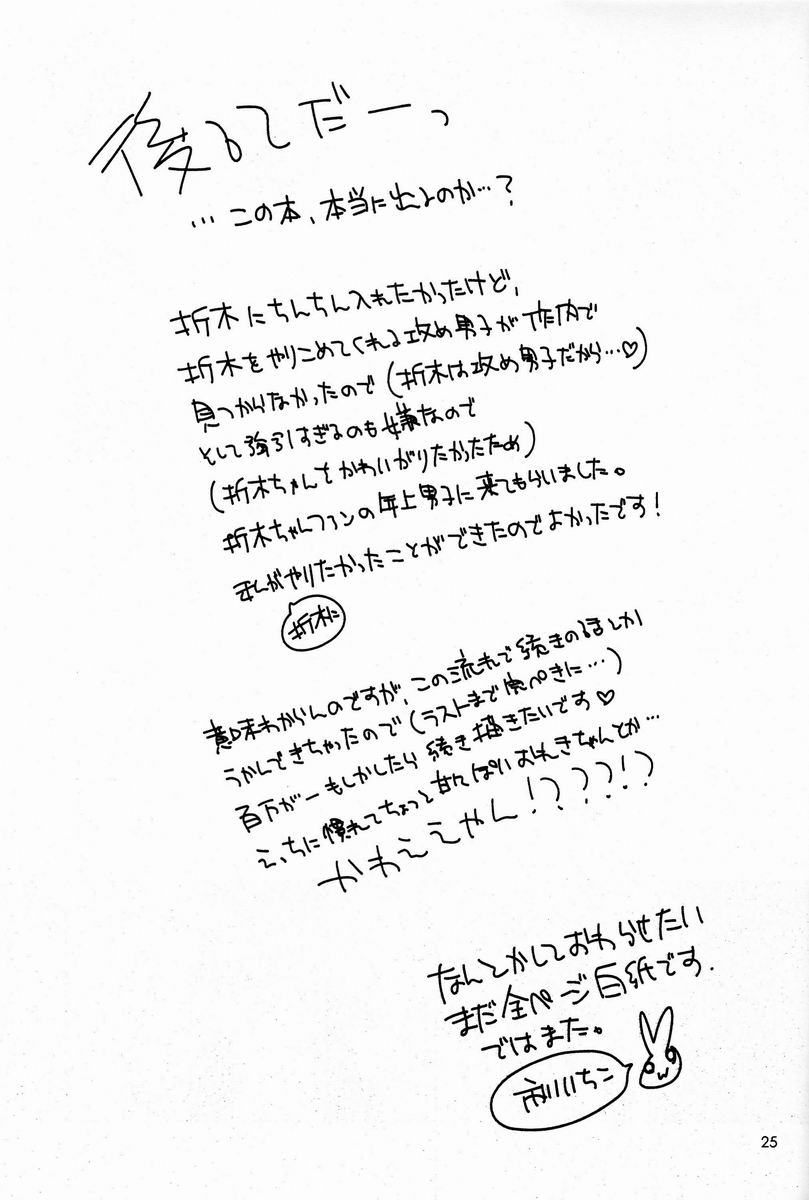 後るてだーっ
…この本、本当に出るのか…?
折木にちんちん入れたかったけど、
折木をやりこめてくれる攻め男子が作内で
見つからなかったので(折木は攻め男子だから…♡)
として強引すぎるのも嫌なので
(折木ちゃんをかわいがりたかったため)
折木ちゃんファンの年上男子に来てもらいました。
まんがやりたかったことができたのでよかったです!
折木に
意味わからんのですが、この流れで続きのほとか
うかんできちゃったので(ラストまで完ぺきに…)
百万が一もしかしたら続き描きたいです♡
えっちに慣れてちょっと甘えっぽいおれきちゃんとか…
かわええやん!????!?
なんとかしておわらせたい
まだ全ページ白紙です.
ではまた。
いちこ
25